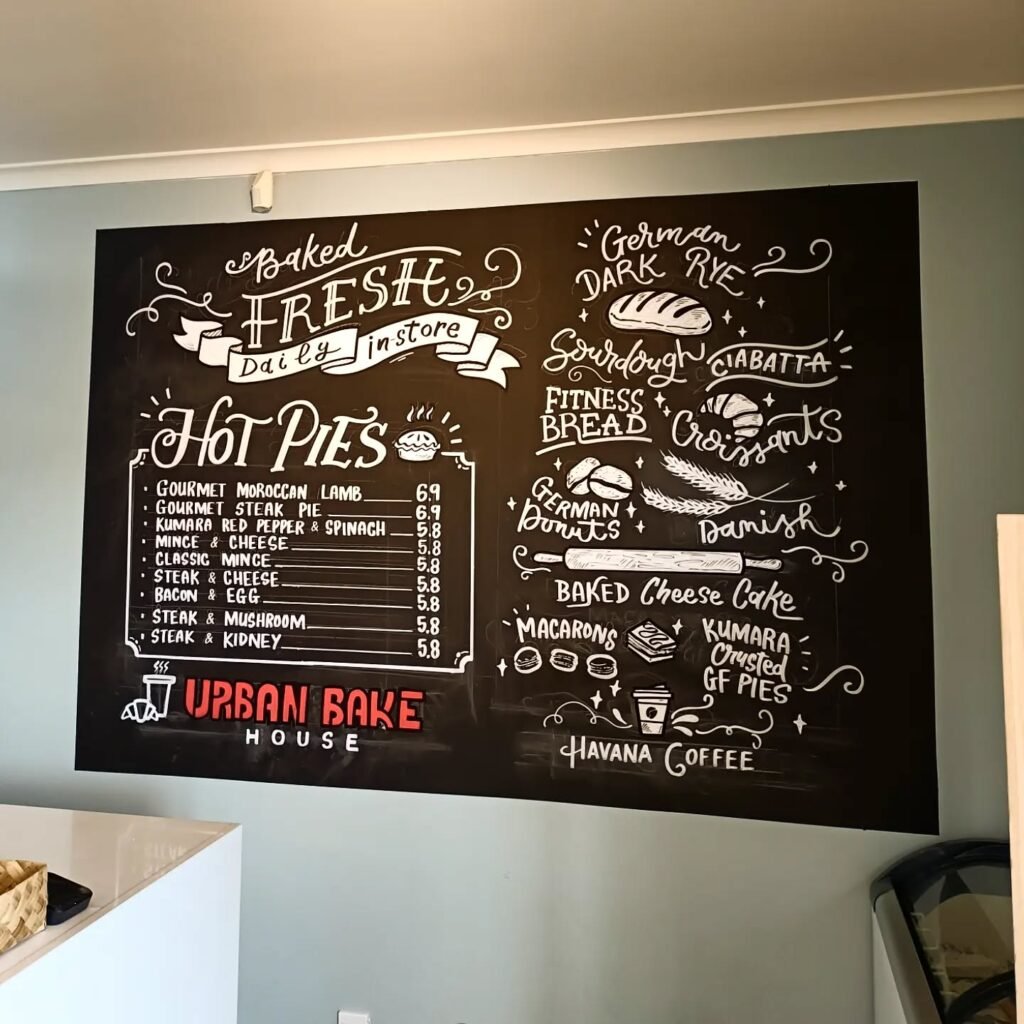 Baked
FRESH
Daily in-store
HOT PIES
· GOURMET MOROCCAN LAMB 6.9
· GOURMET STEAK PIE 6.9
· KUMARA RED PEPPER & SPINACH 5.8
· MINCE & CHEESE 5.8
· CLASSIC MINCE 5.8
· STEAK & CHEESE 5.8
· BACON & EGG 5.8
· STEAK & MUSHROOM 5.8
· STEAK & KIDNEY 5.8
URBAN BAKE
HOUSE
German
DARK RYE
Sourdough
CIABATTA
FITNESS
BREAD
Croissants
GERMAN
Donuts
Danish
BAKED Cheese Cake
MACARONS
KUMARA
Crusted
GF PIES
HAVANA COFFEE